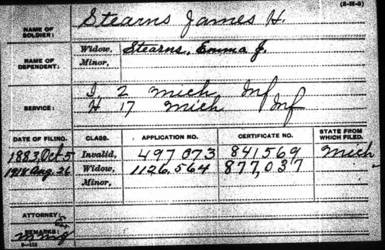 Stearns James H.
NAME OF SOLDIER:
NAME OF DEPENDENT:
Widow, Stearns, Emma J.
Minor,
SERVICE:
I, 2 Mich Inf
H 17 Mich Inf
DATE OF FILING. CLASS. APPLICATION NO. CERTIFICATE NO. STATE FROM WHICH FILED.
1883, Oct. 5 Invalid, 497,073 841,569 Mich
1918 Aug. 26 Widow, 1126,564 877,037
Minor,
ATTORNEY:
REMARKS: